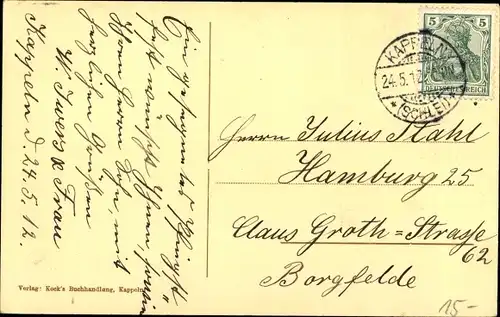 Ein gesegnetes Pfingst-
fest wünscht Ihnen, sowie
Ihrem Herrn Sohn, mit
herzlichen Grüßen
W. Iwers & Frau
Kappeln d. 24.5.12.
Verlag: Kock's Buchhandlung, Kappeln
5 5
DEUTSCHES REICH
KAPPELN
24.5.12
* (SCHLEI) *
Herrn Julius Stahl
Hamburg 25
Claus Groth-Strasse
62
Borgfelde
15-